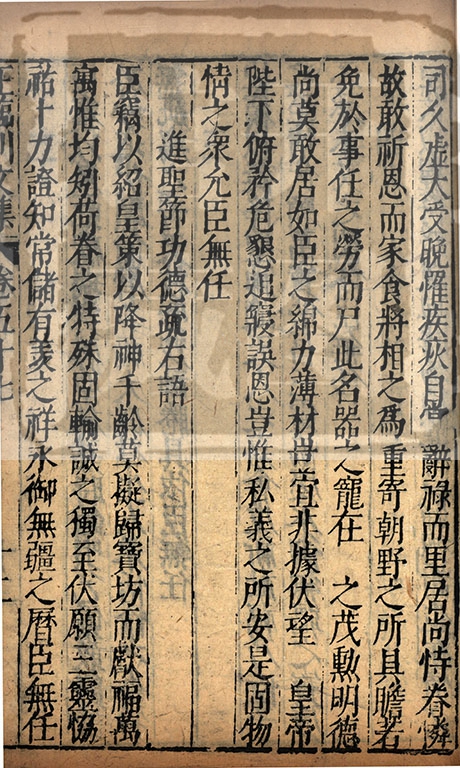 司久虚大受晚罹疾疢自 辭禄而里居尚恃眷憐
故敢祈恩而家食將相之爲重寄朝野之所具瞻若
免於事任之勞而尸此名器之寵在 之茂勲明德
尚莫敢居如臣之綿力薄材豈宜非據伏望 皇帝
陛下俯矜危懇追寢誤恩豈惟私義之所安是固物
情之衆允臣無任
進聖節功德疏右語
臣竊以紹皇策以降神千齡莫擬歸寶坊而獻福萬
寓惟均矧荷眷之特殊固輸誠之獨至伏願三靈協
祐十力證知常儲有羨之祥永御無疆之曆臣無任
王臨川文集 卷五十七 十二